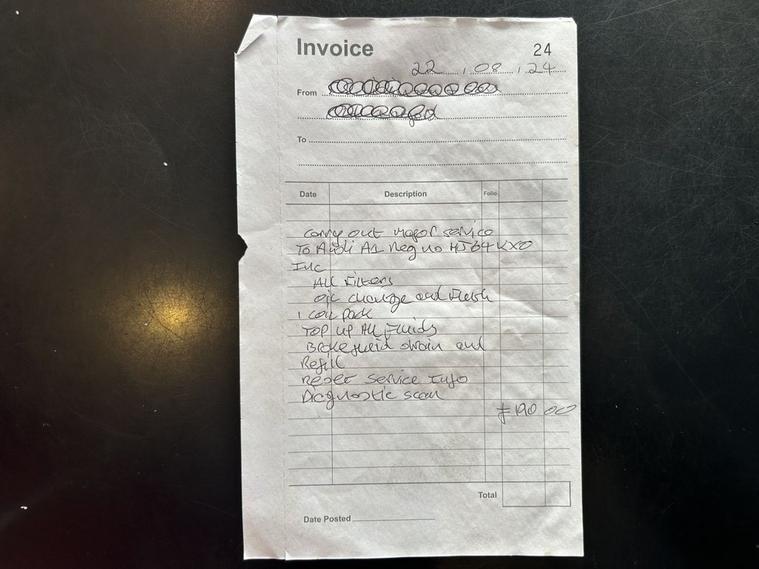 Invoice 24
22 . 08 . 24
From
To
Date Description Folio
Carry out major service
To Audi A1 Reg no HJ64 KXO
Inc
All Filters
Oil change and Flush
1 coil pack
Top up All Fluids
Brake fluid drain and
Refill
Reset Service Info
Diagnostic scan
£190 00
Total
Date Posted